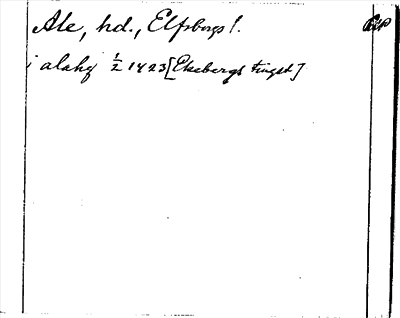 Ale, hd., Elfsborgs l.
i alahg ½ 1423 [Ekebergs tingst]